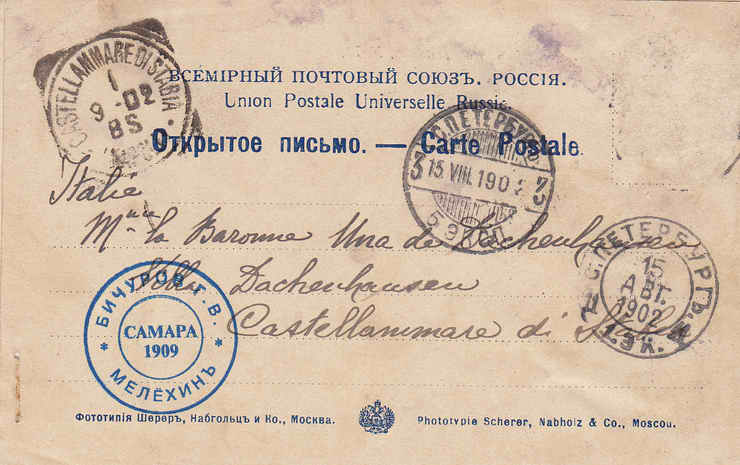 CASTELLAMMARE DI STABIA
1
9-02
8S
ВСЕМІРНЫЙ ПОЧТОВЫЙ СОЮЗЪ. РОССІЯ.
Union Postale Universelle Russie.
Открытое письмо. — Carte Postale.
С.ПЕТЕРБУРГ
3 15 VIII.1902 3
Italie
Mme la Baronne Una de Dachenhausen
Villa Dachenhausen
Castellammare di Stabia
С.ПЕТЕРБУРГЪ
15
АВГ.
1902
1.Э К.
БИЧУРОВ Г. В.
САМАРА
1909
* МЕЛЁХИНЪ *
Фототипія Шереръ, Набгольцъ и Ко., Москва.
Phototypie Scherer, Nabholz & Co., Moscou.